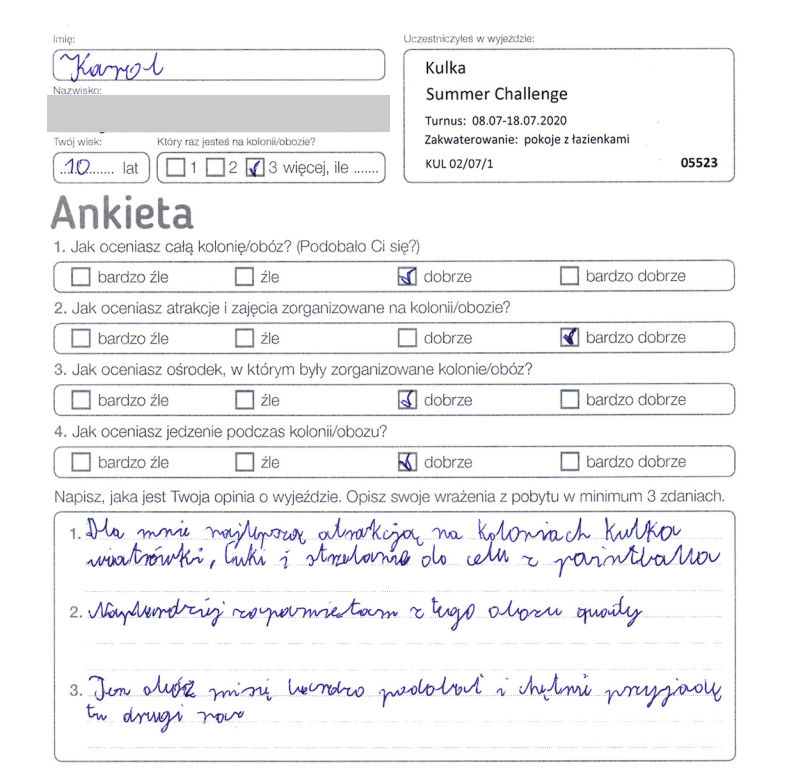 Imię:
Karol
Nazwisko:
Twój wiek:
10 lat
Który raz jesteś na kolonii/obozie?
1 2 3 więcej, ile .......
Uczestniczyłeś w wyjeździe:
Kulka
Summer Challenge
Turnus: 08.07-18.07.2020
Zakwaterowanie: pokoje z łazienkami
KUL 02/07/1 05523
Ankieta
1. Jak oceniasz całą kolonię/obóz? (Podobało Ci się?)
bardzo źle źle dobrze bardzo dobrze
2. Jak oceniasz atrakcje i zajęcia zorganizowane na kolonii/obozie?
bardzo źle źle dobrze bardzo dobrze
3. Jak oceniasz ośrodek, w którym były zorganizowane kolonie/obóz?
bardzo źle źle dobrze bardzo dobrze
4. Jak oceniasz jedzenie podczas kolonii/obozu?
bardzo źle źle dobrze bardzo dobrze
Napisz, jaka jest Twoja opinia o wyjeździe. Opisz swoje wrażenia z pobytu w minimum 3 zdaniach.
1. Dla mnie najlepszą atrakcją na koloniach Kulka
wiatrówki, łuki i strzelanie do celu z paintballa
2. Najbardziej zapamietam z tego obozu quady
3. Ten obóz mi się bardzo podobał i chętnie przyjadę
tu drugi raz